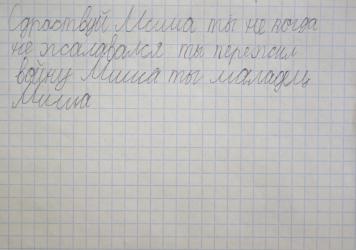 Сдраствуй Миша ты не когда
не жаловался ты пережил
войну Миша ты маладец
Миша